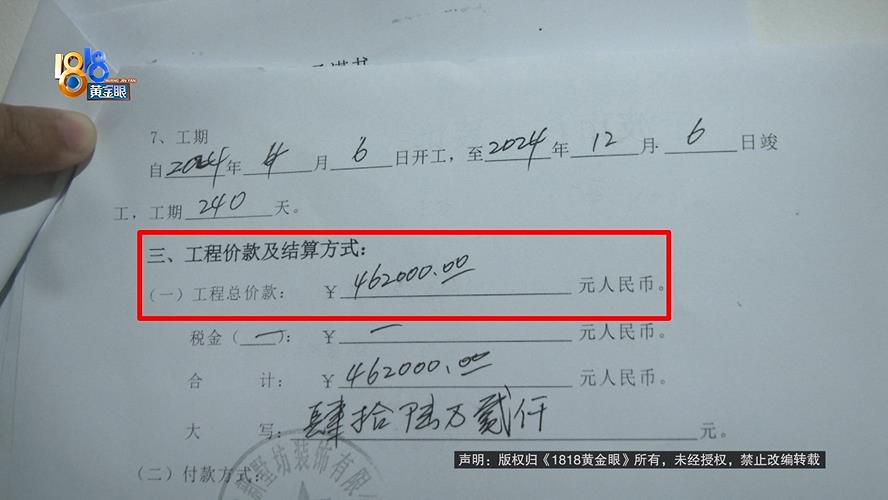 1818
HUANG JIN YAN
黄金眼
7、工期
自2024年4月6日开工,至2024年12月6日竣
工,工期240天。
三、工程价款及结算方式:
(一)工程总价款: ¥462000.00元人民币。
税金(一): ¥一元人民币。
合 计: ¥462000.00元人民币。
大 写:肆拾陆万贰仟元。
坊装饰有限
(二)付款方式:
声明:版权归《1818黄金眼》所有,未经授权,禁止改编转载